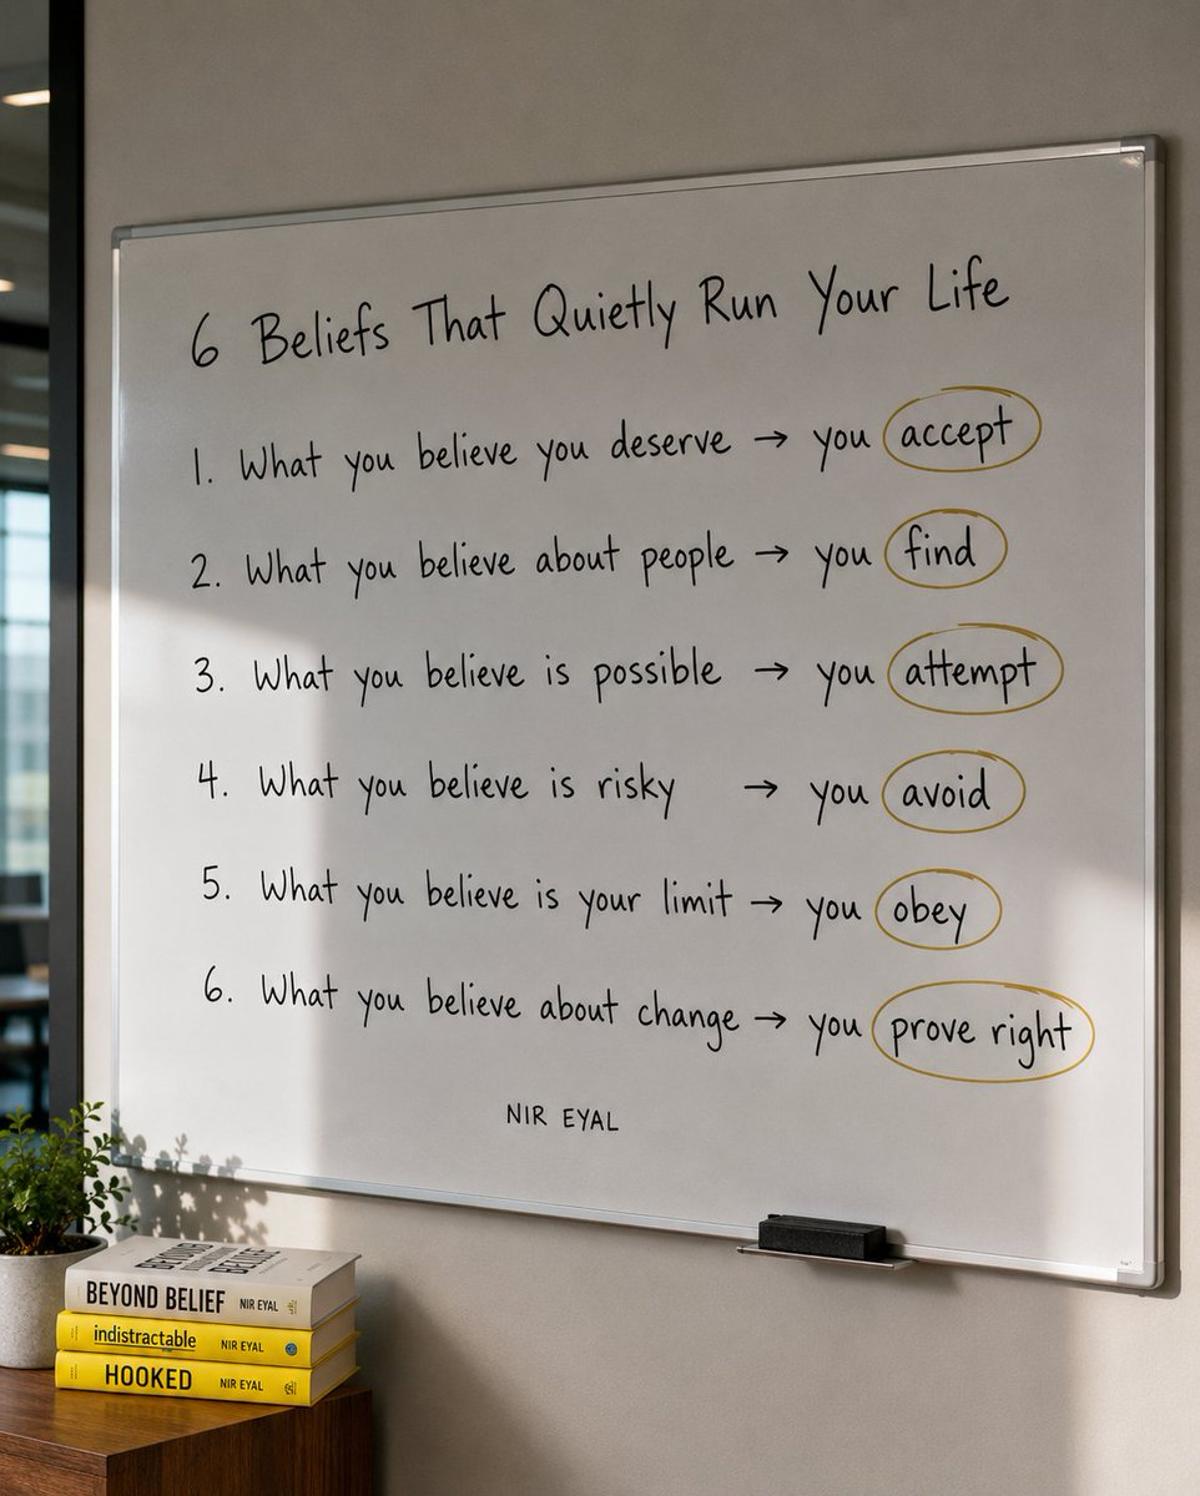 6 Beliefs That Quietly Run Your Life
1. What you believe you deserve → you accept
2. What you believe about people → you find
3. What you believe is possible → you attempt
4. What you believe is risky → you avoid
5. What you believe is your limit → you obey
6. What you believe about change → you prove right
NIR EYAL
BEYOND BELIEF NIR EYAL
indistractable NIR EYAL
HOOKED NIR EYAL